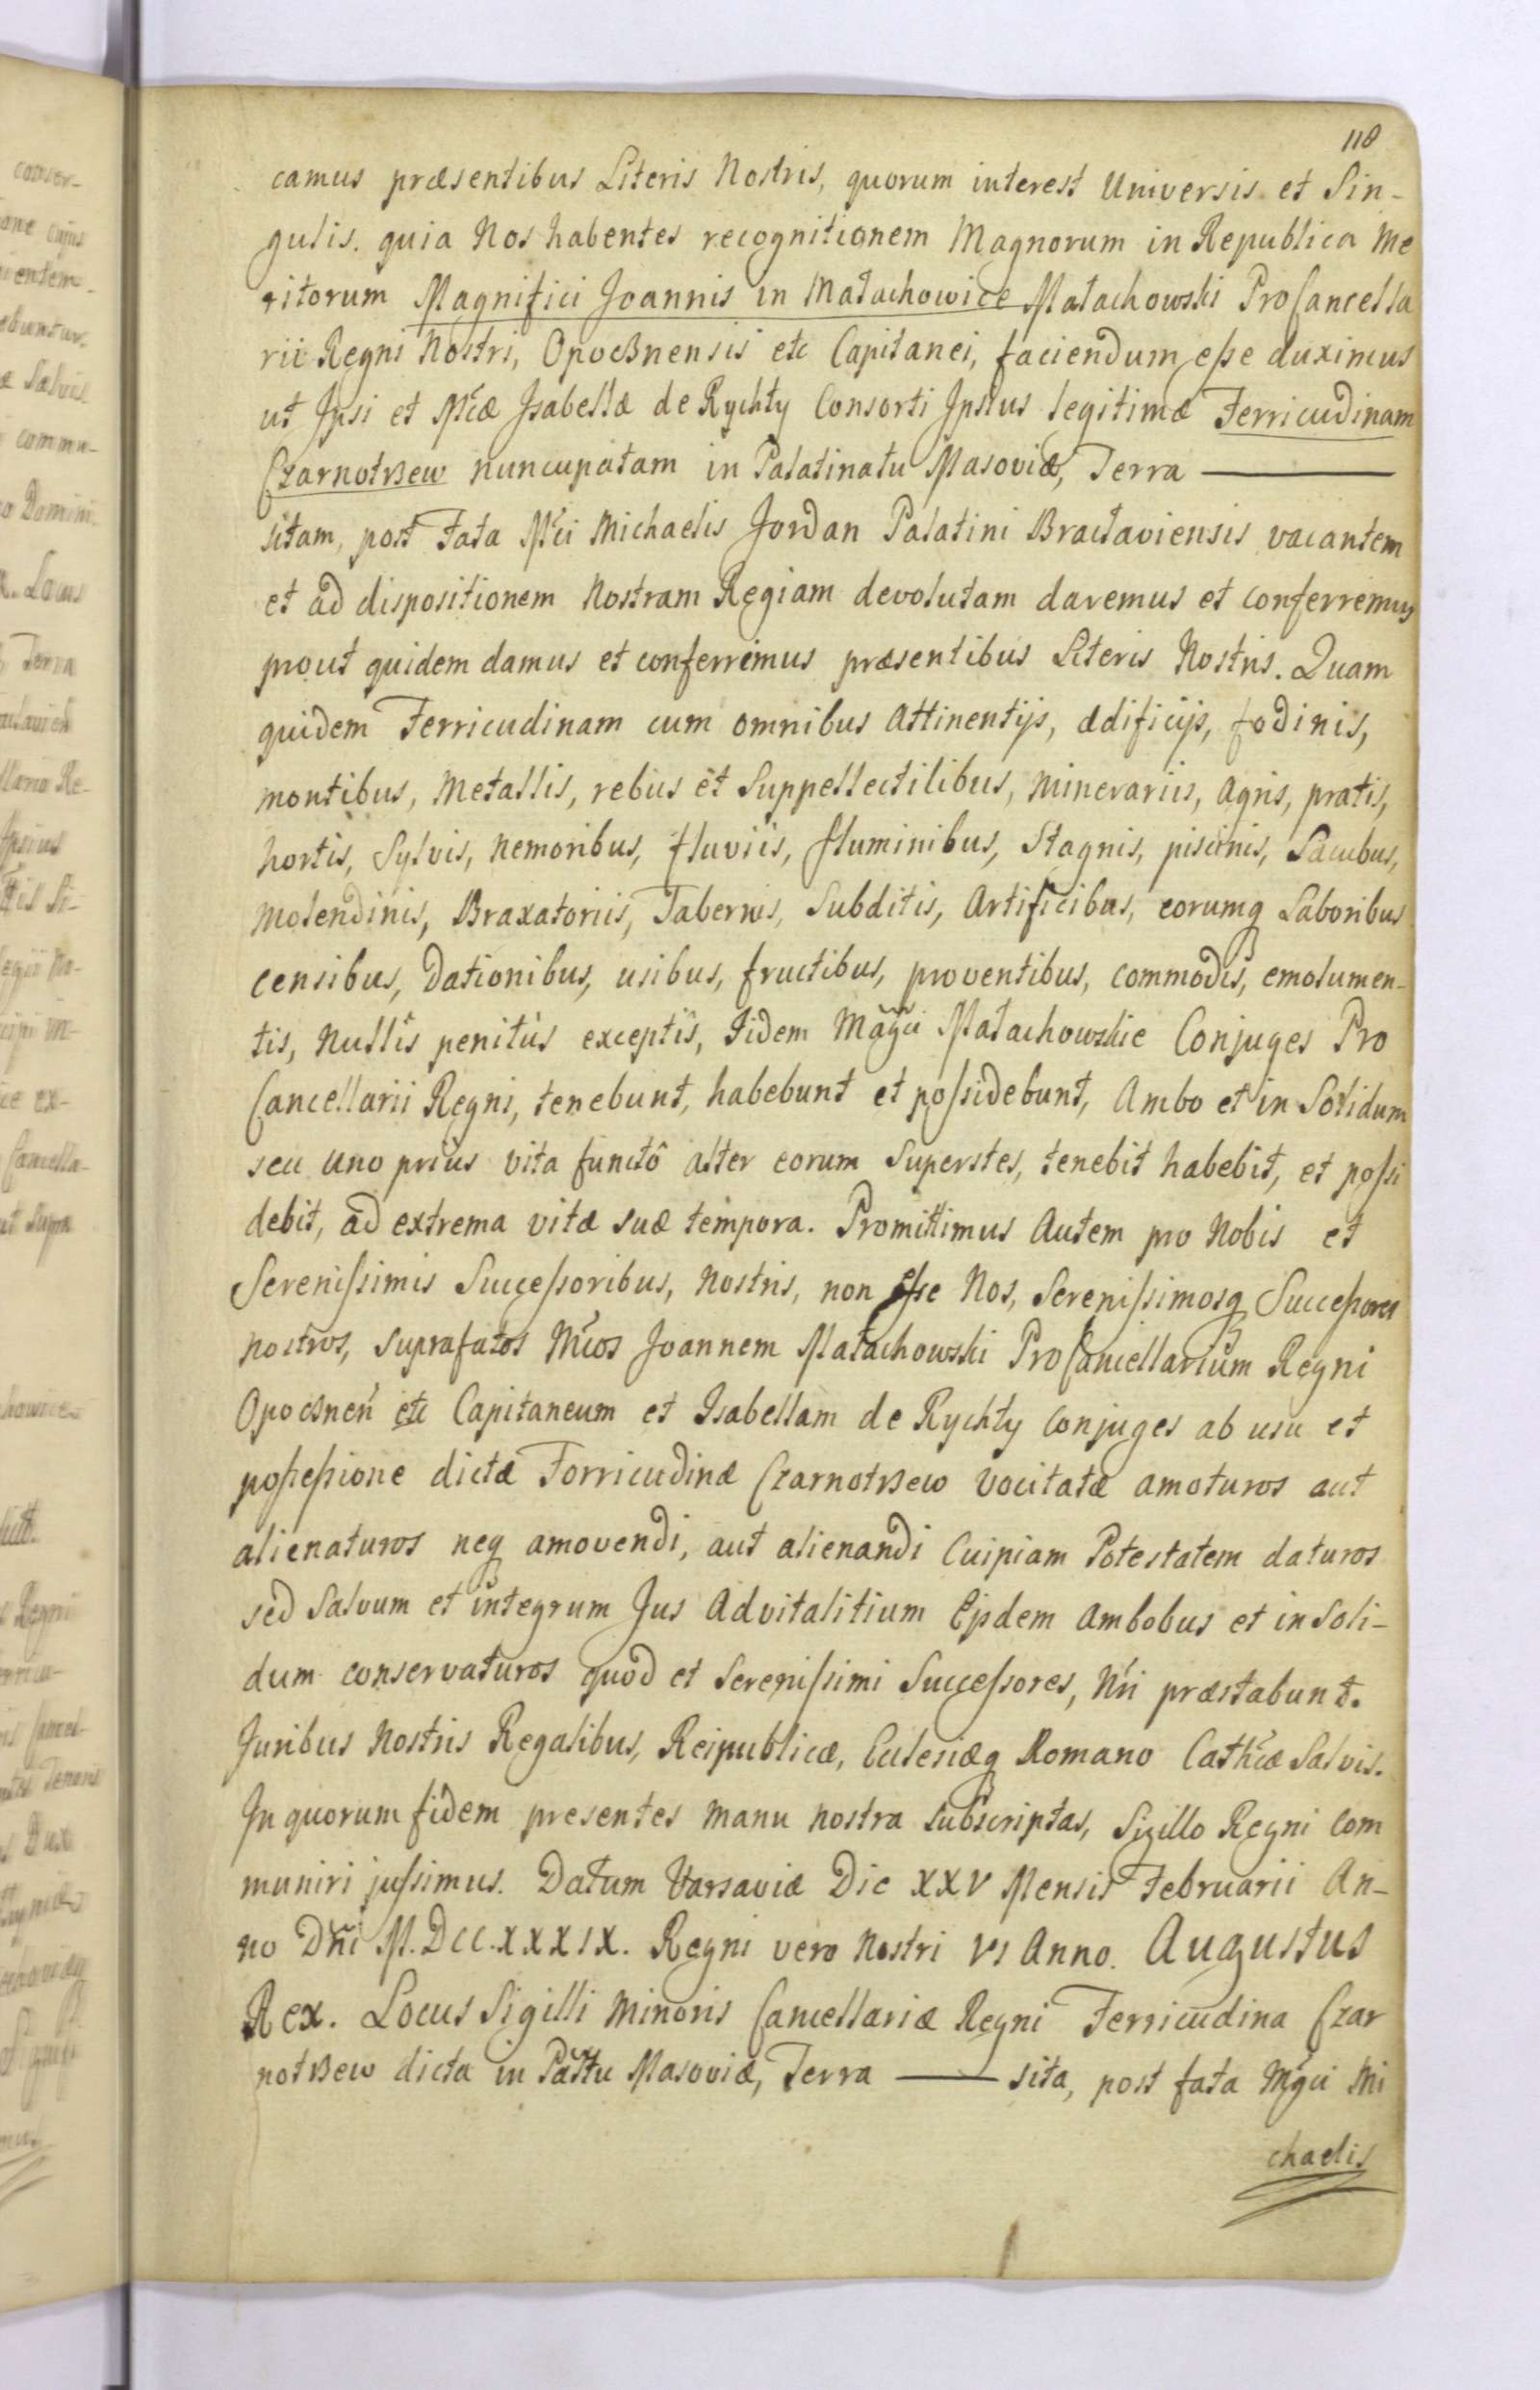 118
camus præsentibus Literis Nostris, quorum interest Universis et Sin-
gulis. quia Nos habentes recognitionem Magnorum in Republica Me
ritorum Magnifici Joannis in Małachowice Małachowski ProCancella
rii Regni Nostri, Opocznensis etc Capitanei, faciendum esse duximus
ut Ipsi et Mcæ Isabellæ de Rychty Consorti Ipsius legitimæ Ferricudinam
Czarnotrzew nuncupatam in Palatinatu Masoviæ, Terra ———
sitam, post Fata Mci Michaelis Jordan Palatini Bracłaviensis vacantem
et ad dispositionem Nostram Regiam devolutam daremus et conferremus
prout quidem damus et conferrimus præsentibus Literis Nostris. Quam
quidem Ferricudinam cum omnibus Attinentijs, ædificijs, fodinis,
montibus, Metallis, rebus et Suppellectilibus, Minerariis, Agris, pratis,
hortis, Sylvis, Nemoribus, fluviis, fluminibus, Stagnis, piscinis, Lacubus,
Molendinis, Braxatoriis, Tabernis, Subditis, Artificibus, eorumq Laboribus
censibus, Dationibus, usibus, fructibus, proventibus, commodis, emolumen-
tis, Nullis penitùs exceptis, Iidem Magci Małachowskie Conjuges Pro
Cancellarii Regni, tenebunt, habebunt et possidebunt, Ambo et in Solidum
seu uno prius vita functô alter eorum Superstes, tenebit habebit, et possi
debit, ad extrema vitæ suæ tempora. Promittimus Autem pro Nobis et
Serenissimis Successoribus, Nostris, non esse Nos, Serenissimosq Successores
nostros, suprafatos Mcos Joannem Małachowski ProCancellarium Regni
Opocznen etc Capitaneum et Isabellam de Rychty Conjuges ab usu et
possessione dictæ Forricudinæ Czarnotrzew Vocitatæ amoturos aut
alienaturos neq amovendi, aut alienandi Cuipiam Potestatem daturos
sed Salvum et integrum Jus Advitalitium Ejsdem Ambobus et in Soli-
dum conservaturos quod et Serenissimi Successores, Nri præstabunt.
Juribus Nostris Regalibus, Reipublicæ, Eclesiæq Romano Cathcæ Salvis.
In quorum fidem presentes Manu nostra subscriptas, Sigillo Regni Com
muniri jussimus. Datum Varsaviæ Die XXV Mensis Februarii An-
no Dni M.DCC.XXXIX. Regni vero Nostri VI Anno. Augustus
Rex. Locus Sigilli Minoris Cancellariæ Regni Ferricudina Czar
notrzew dicta in Pałttu Masoviæ, Terra —— sita, post fata Mgci Mi
chaelis